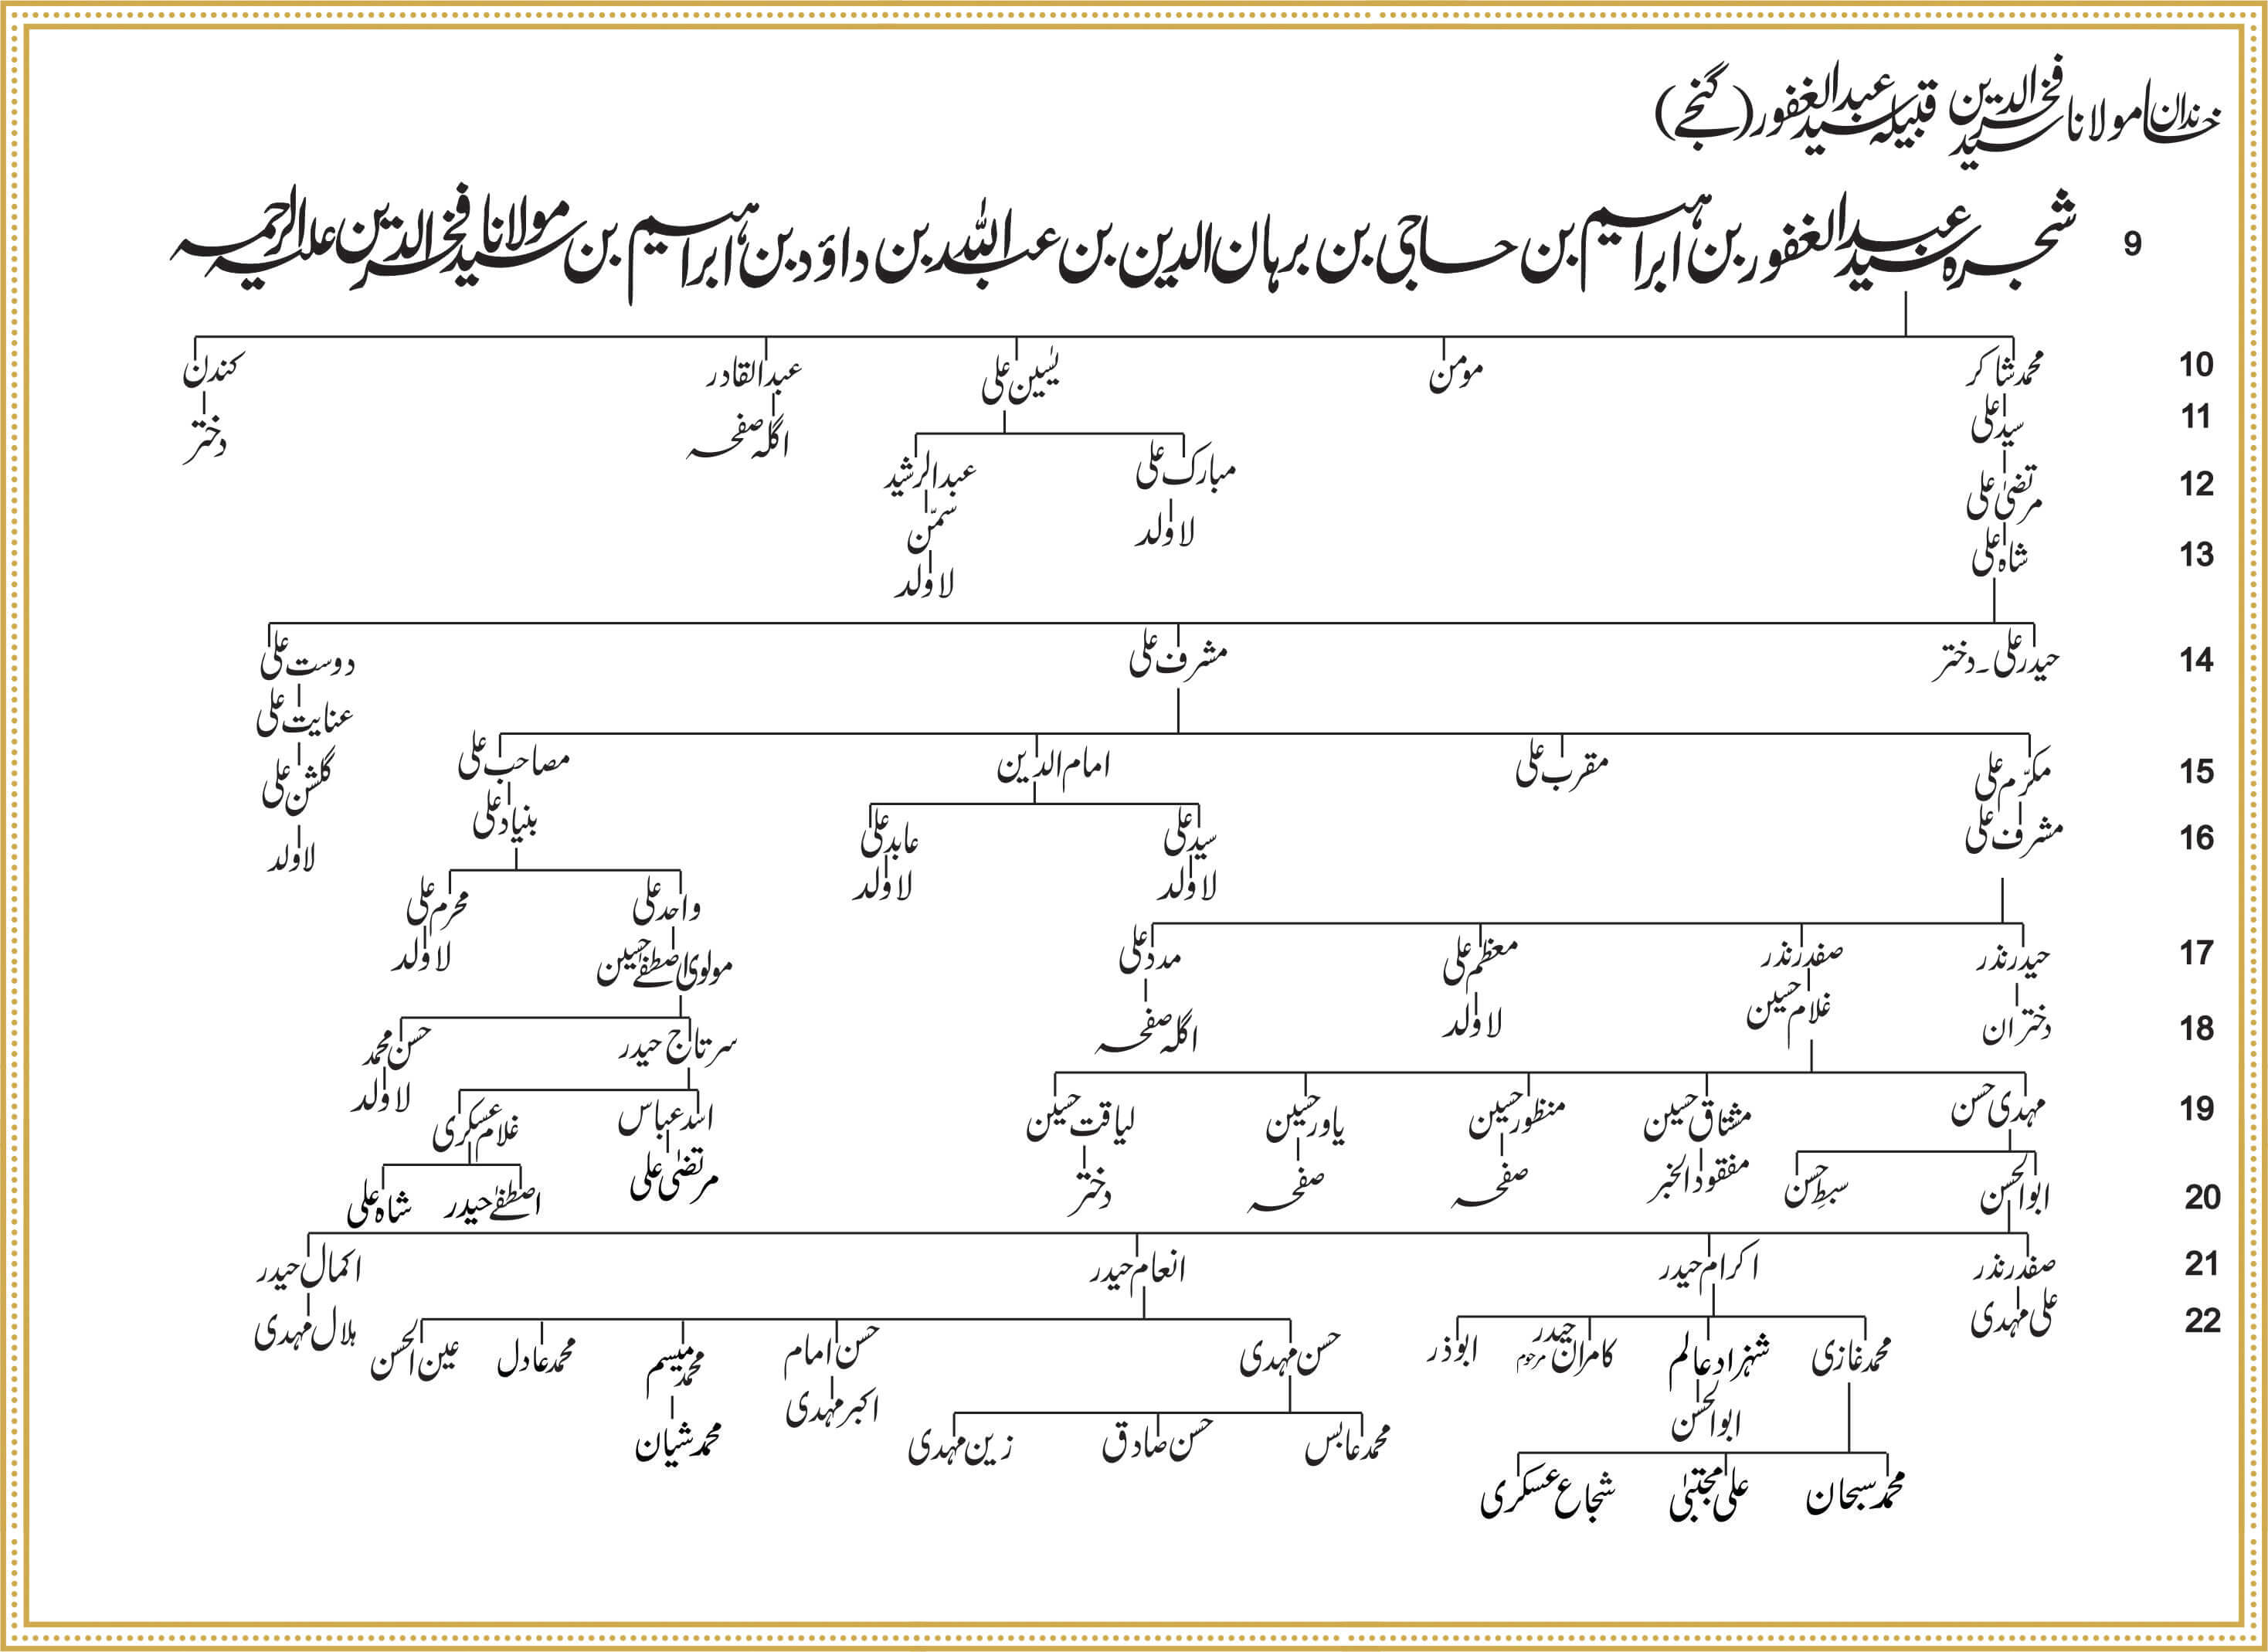 خاندان مولانا سید فخرالدین قبیلہ سید عبدالغفور (گنجے)
9 شجرہ سید عبدالغفور بن ابراہیم بن حاجی بن برہان الدین بن عبداللہ بن داؤد بن ابراہیم بن مولانا سید فخرالدین علیہ الرحمہ
10 محمد شاکر مومن یٰسین علی عبدالقادر کندن
11 سید علی اگلہ صفحہ دختر
12 مرتضیٰ علی مبارک علی عبدالرشید
لاولد سمّن
13 شاہ علی لاولد
14 حیدر علی۔دختر مشرف علی دوست علی
عنایت علی
15 مکرّم علی مقرب علی امام الدین مصاحب علی گلشن علی
16 مشرف علی سید علی عابد علی بنیاد علی لاولد
لاولد لاولد واحد علی محرم علی
17 حیدر نذر صفدر نذر معظم علی مدد علی مولوی اصطفےٰ حسین لاولد
18 دختران غلام حسین لاولد اگلہ صفحہ سرتاج حیدر حسن محمد
لاولد
19 مہدی حسن مشتاق حسین منظور حسین یاور حسین لیاقت حسین اسد عباس غلام عسکری
20 ابوالحسن سبط حسن مفقود الخبر صفحہ صفحہ دختر مرتضیٰ علی اصطفےٰ حیدر شاہ علی
21 صفدر نذر اکرام حیدر انعام حیدر اکمال حیدر
22 علی مہدی محمد غازی شہزاد عالم کامران حیدر مرحوم ابوذر حسن مہدی حسن امام محمد میسم محمد عادل عین الحسن ہلال مہدی
ابوالحسن محمد عابس حسن صادق زین مہدی اکبر مہدی محمد شیان
محمد سبحان علی مجتبیٰ شجاع عسکری